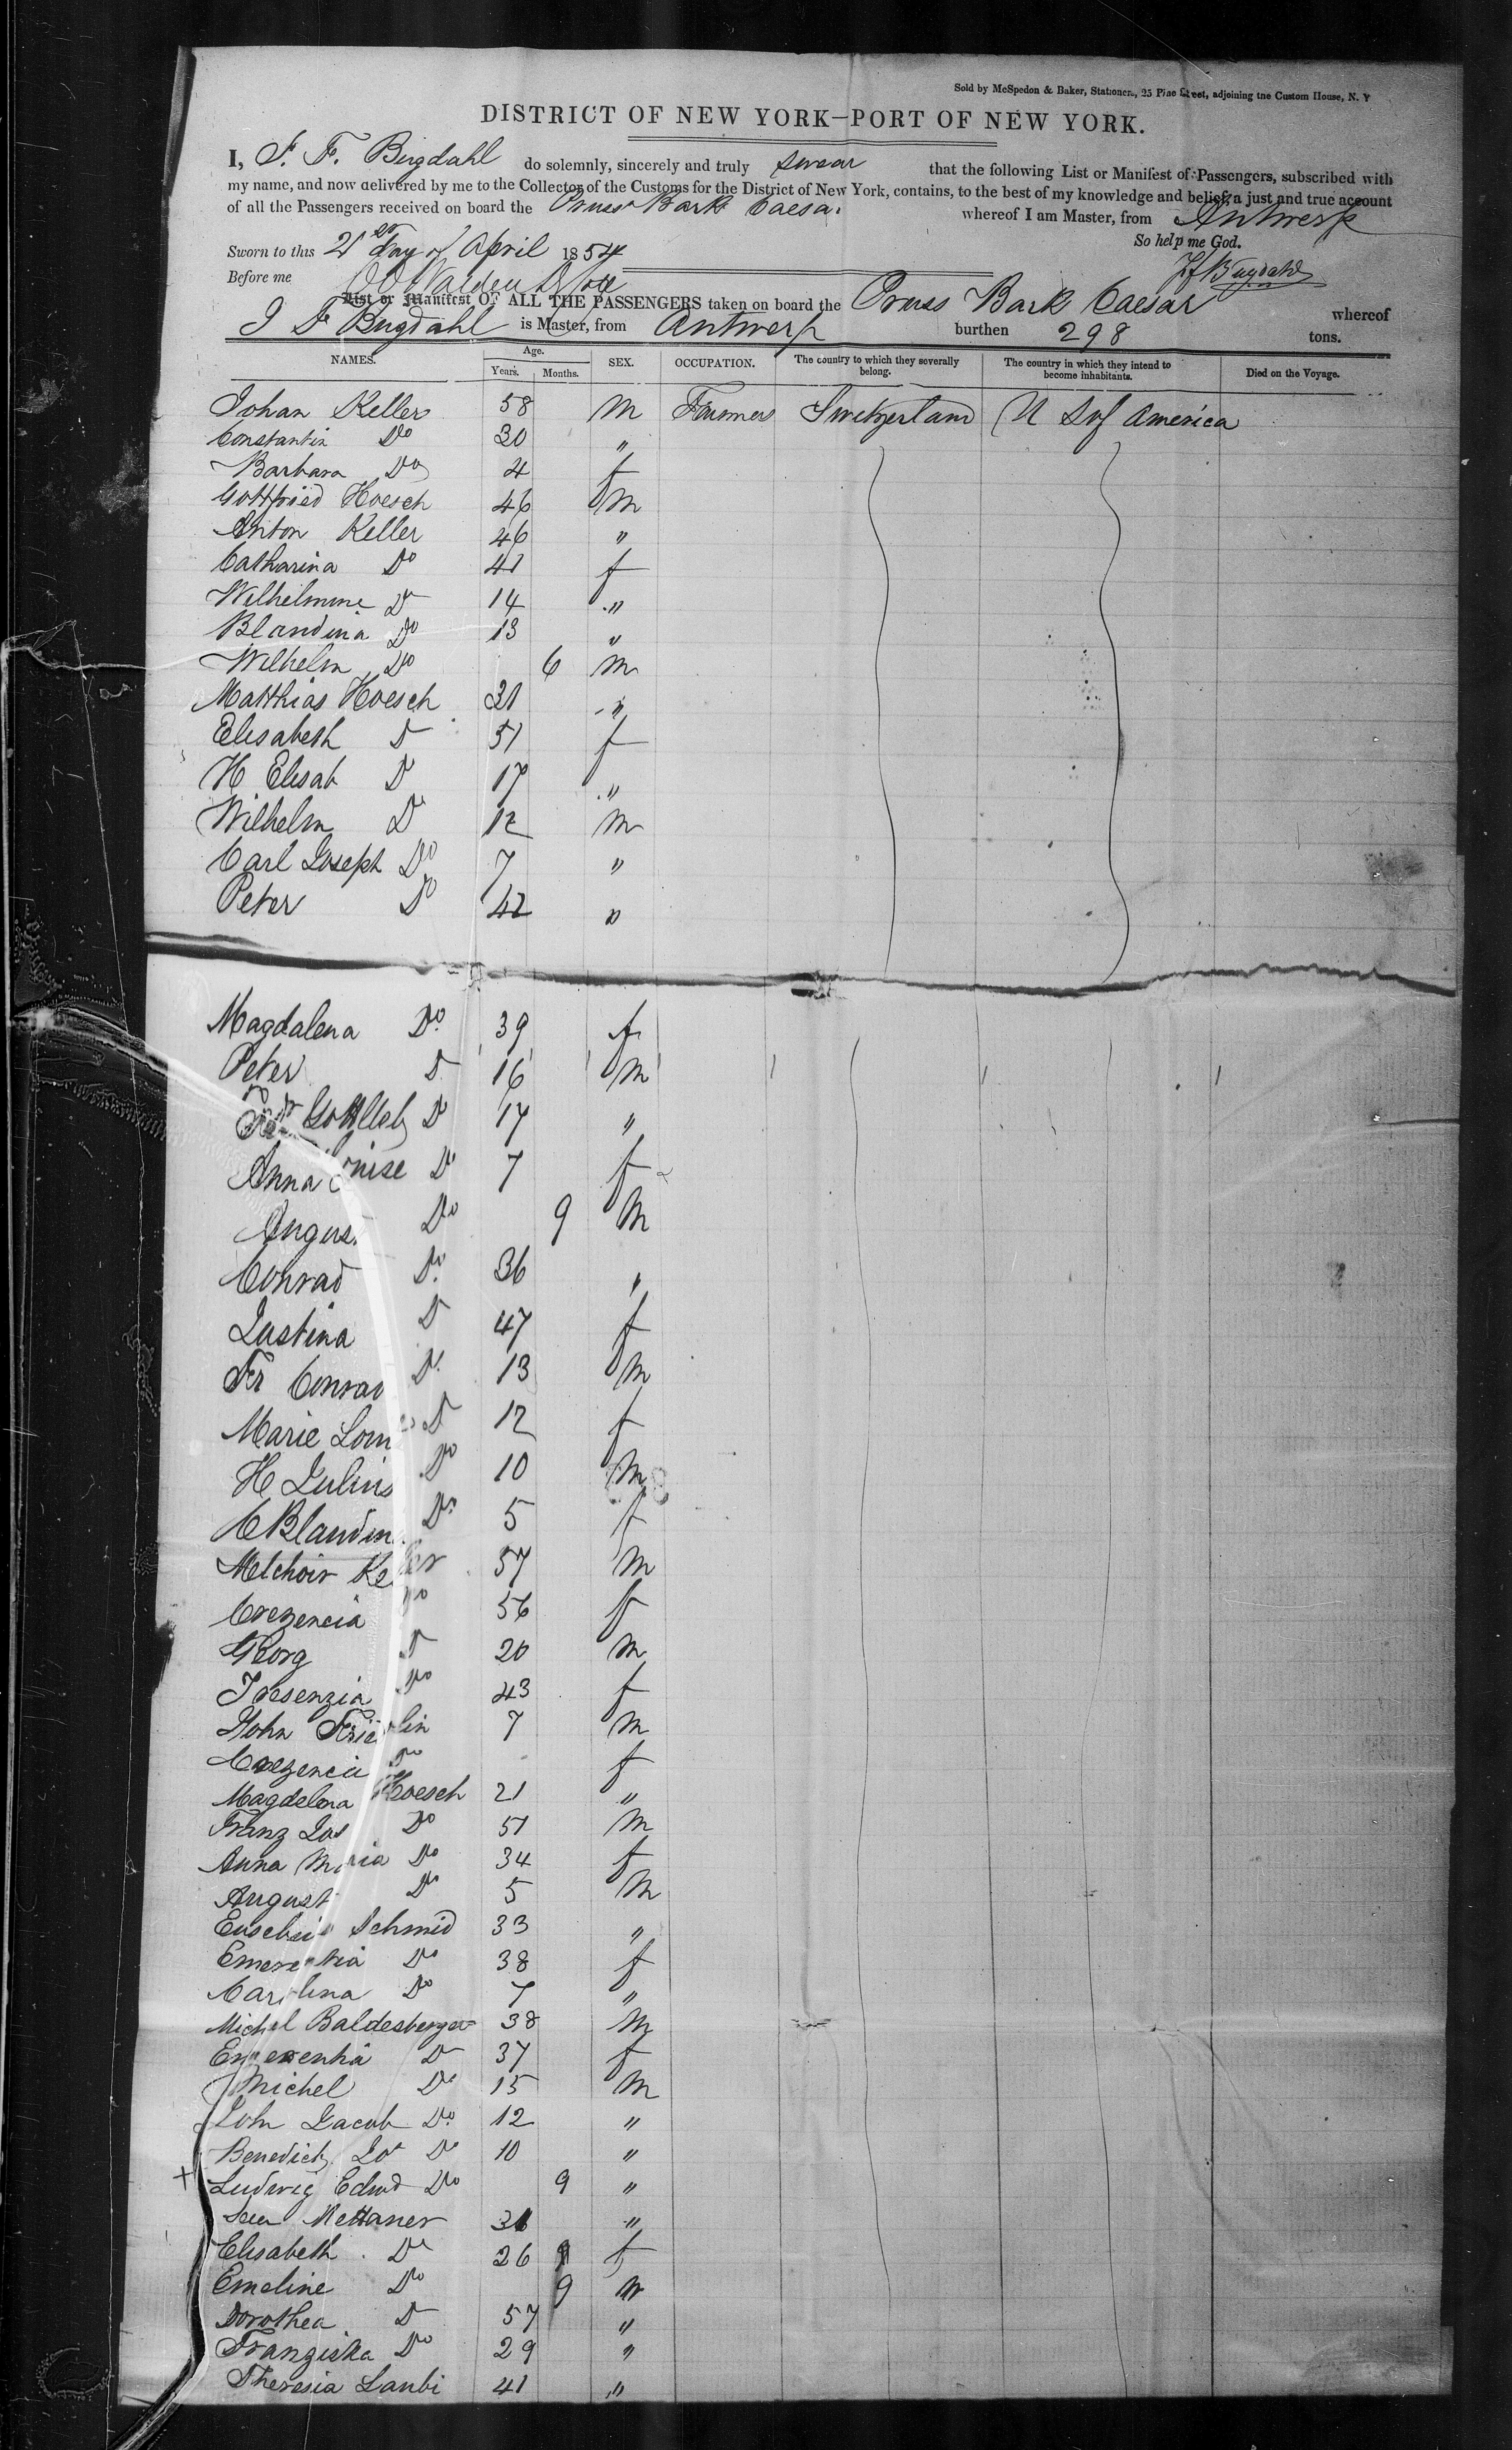 Sold by McSpedon & Baker, Stationers, 25 Pine Street, adjoining the Custom House, N. Y
DISTRICT OF NEW YORK—PORT OF NEW YORK.
I, J. F. Bugdahl do solemnly, sincerely and truly swear that the following List or Manifest of Passengers, subscribed with
my name, and now delivered by me to the Collector of the Customs for the District of New York, contains, to the best of my knowledge and belief, a just and true account
of all the Passengers received on board the Pruss Bark Caesar whereof I am Master, from Antwerp
So help me God.
Sworn to this 21st Day of April 1854
J f Bugdahl
Before me
List or Manifest OF ALL THE PASSENGERS taken on board the Pruss Bark Caesar whereof
J F Bugdahl is Master, from Antwerp burthen 298 tons.
NAMES. Age. Years. Months. SEX. OCCUPATION. The country to which they severally belong. The country in which they intend to become inhabitants. Died on the Voyage.
Johan Keller 58 M Farmers Switzerland U S of America
Constantin Do 30 "
Barbara Do 4 f
Gottfried Hoesch 46 M
Anton Keller 46 "
Catharina Do 41 f
Wilhelmine D 14 "
Blandina Do 13 "
Wilhelm Do 6 M
Matthias Hoesch 31 "
Elisabeth D 51 f
H Elisab D 17 "
Wilhelm D 12 M
Carl Joseph Do 7 "
Peter Do 42 "
Magdalena Do 39 f
Peter D 16 M
Gottlieb D 14 "
Anna Louise D 7 f
August Do 9 M
Conrad Do 36 "
Justina D 47 f
Fr Conrad D 13 M
Marie D 12 f
H Julius Do 10 M
C Blandina Do 5 f
Melchoir Keller 57 M
Crezencia Do 56 f
Georg D 20 M
Do 43 f
John Fridolin 7 M
Crezencia Do f
Magdelena Hoesch 21 "
Franz Jos Do 51 M
Anna Maria Do 34 f
August Do 5 M
Schmid 33 "
Do 38 f
Carolina Do 7 "
Michel Baldesberger 38 M
Emerentia D 37 f
Michel Do 15 M
Joh Jacob Do 12 "
Benedict Jos D 10 "
+ Ludwig Edwd Do 9 "
Mettaner "
Elisabeth Do 26 f
Emeline Do 9
Dorothea D 57 "
Franziska Do 29 "
Theresia Laubi 41 "